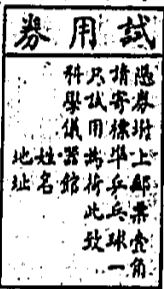 試用券
憑券坿上郵票壹角
請寄標準乒乓球一
只試用為荷此致
科學儀器館
姓名
地址